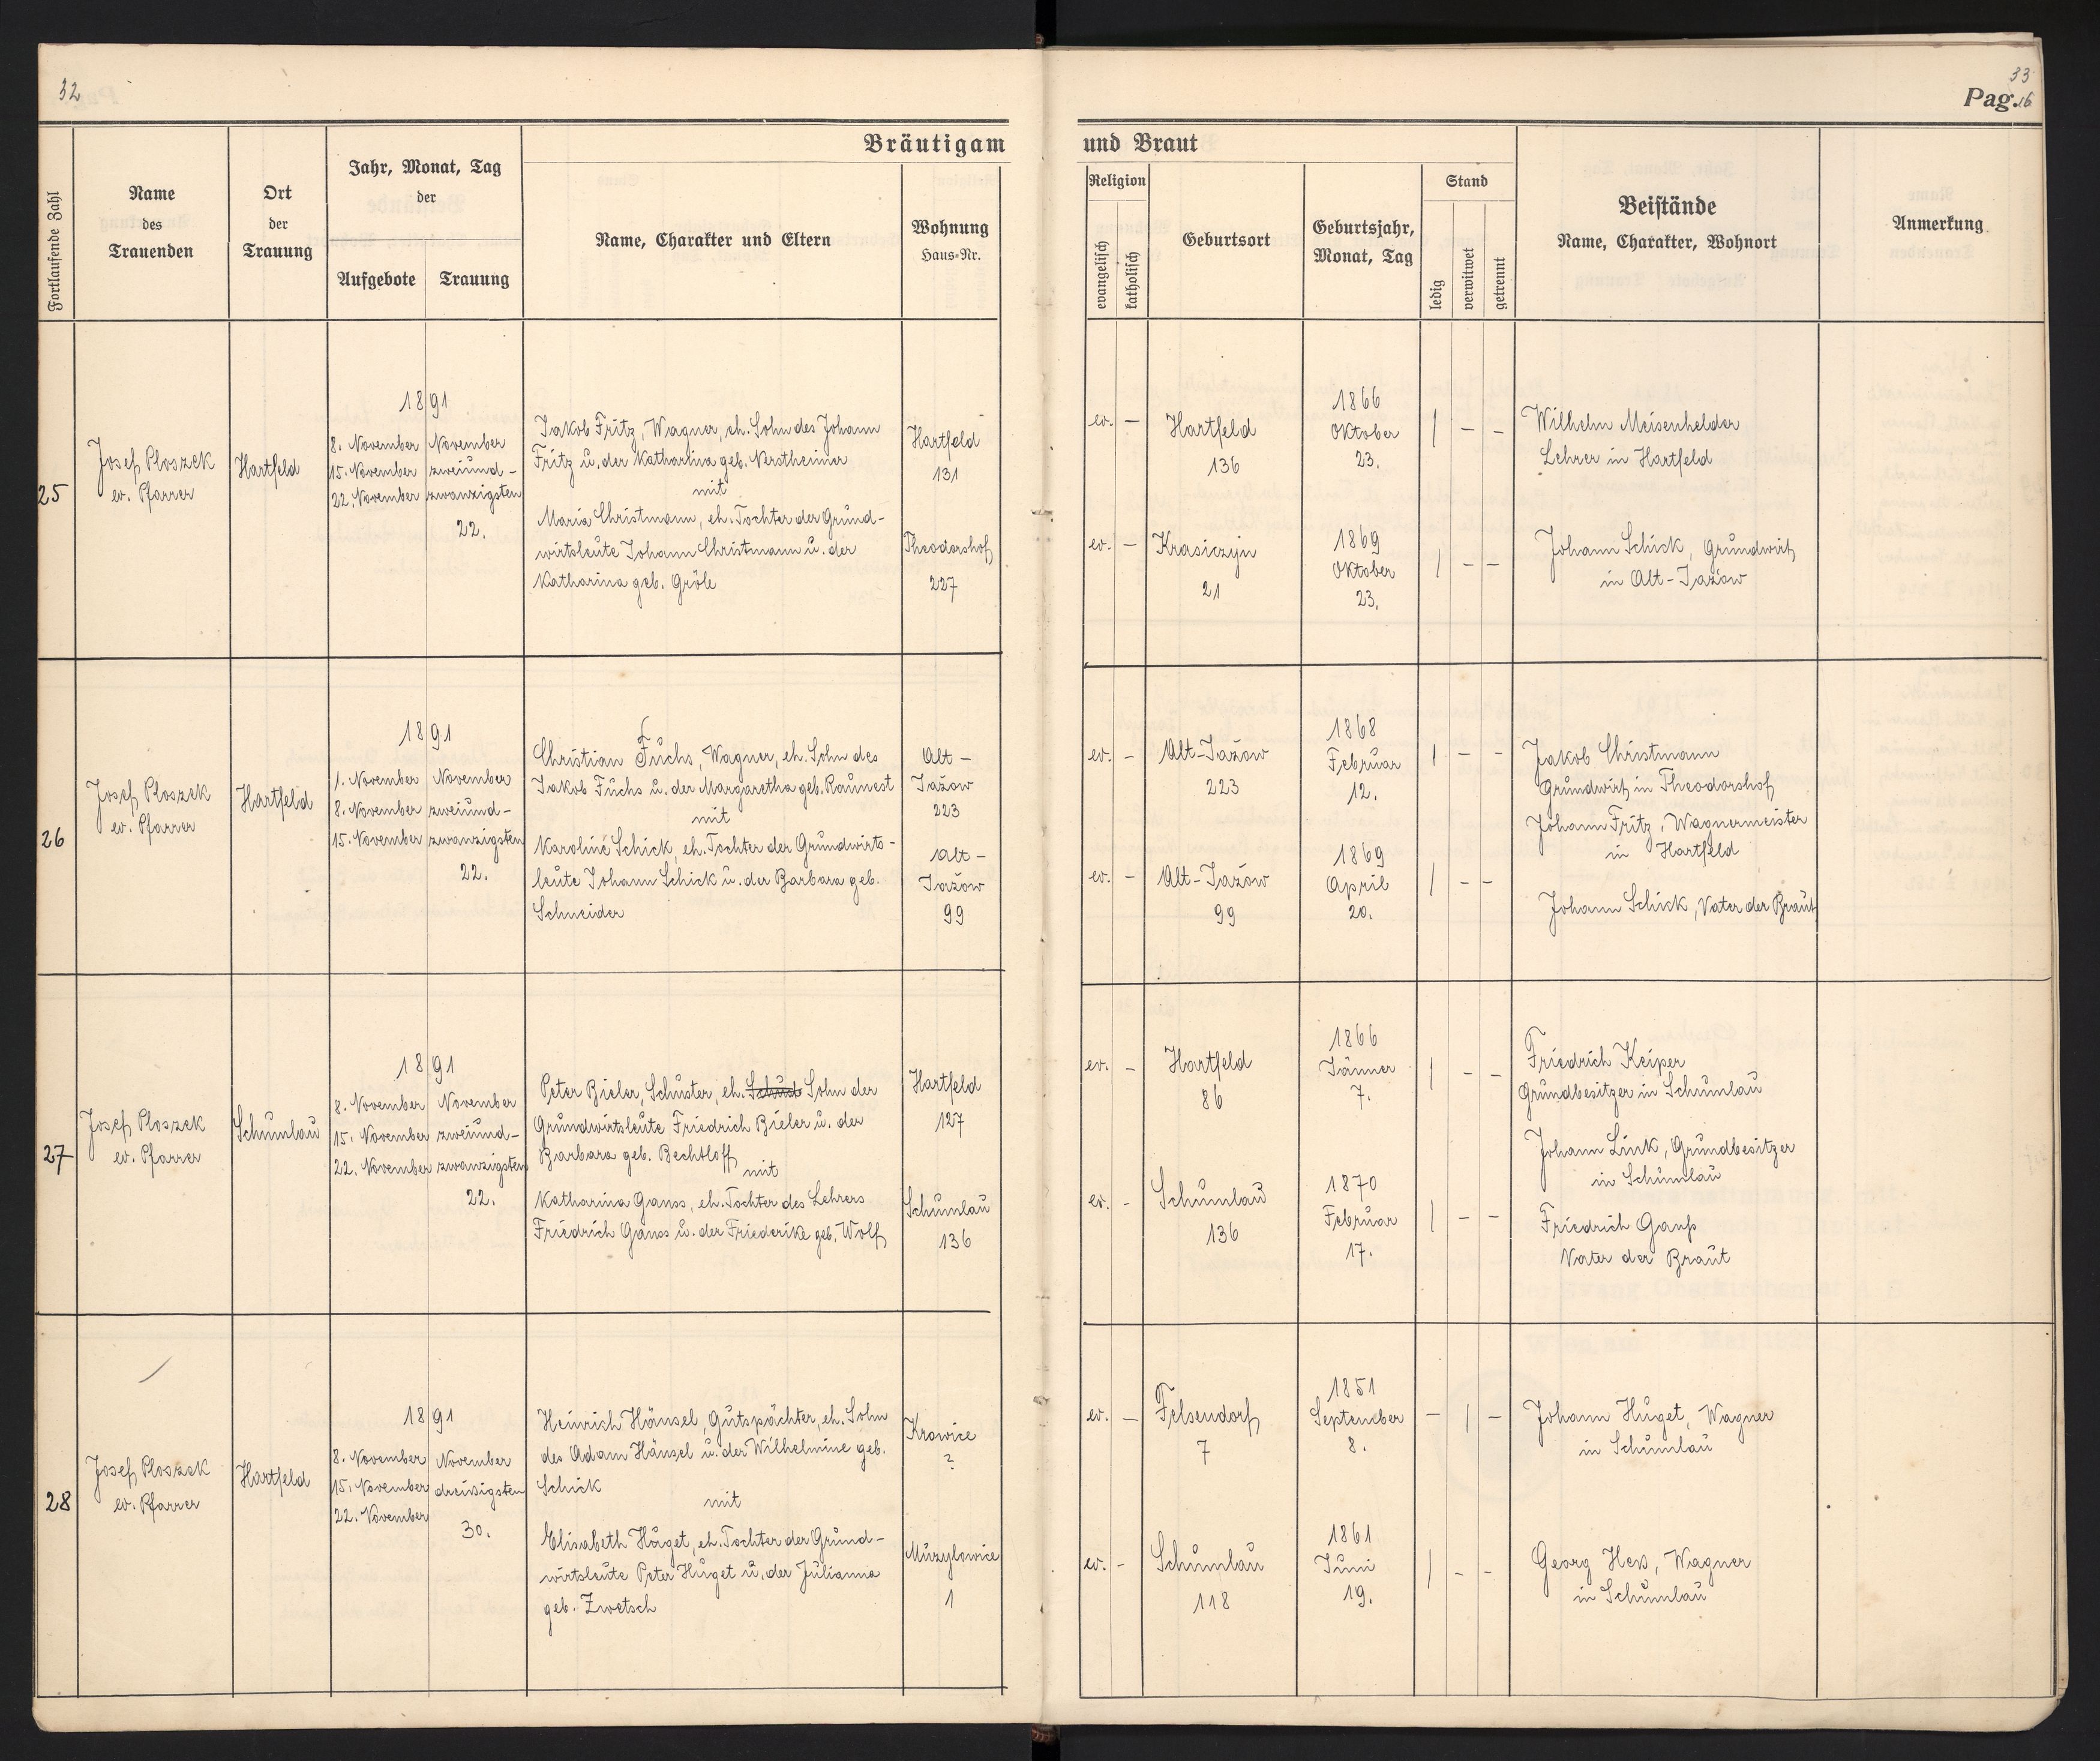 32
33
Pag. 16
Bräutigam und Braut
Fortlaufende Zahl
Name
des
Trauenden
Ort
der
Trauung
Jahr, Monat, Tag
der
Aufgebote
Trauung
Name, Charakter und Eltern
Wohnung
Haus-Nr.
Religion
evangelisch
katholisch
Geburtsort
Geburtsjahr,
Monat, Tag
Stand
ledig
verwitwet
getrennt
Beistände
Name, Charakter, Wohnort
Anmerkung
25
Josef Ploszek
ev. Pfarrer
Hartfeld
1891
8. November
15. November
22. November
November
zweiund-
zwanzigsten
22.
Jakob Fritz, Wagner, eh. Sohn des Johann
Fritz u. der Katharina geb. Verstheimer
mit
Maria Christmann, eh. Tochter der Grund-
wirtsleute Johann Christmann u. der
Katharina geb. Gröle
Hartfeld
131
Theodorshof
227
ev. –
Hartfeld
136
1866
Oktober
23.
| – –
ev. –
Krasiczyn
21
1869
Oktober
23.
| – –
Wilhelm Meisenhelder
Lehrer in Hartfeld
Johann Schick, Grundwirt
in Alt-Jażow
26
Josef Ploszek
ev. Pfarrer
Hartfeld
1891
1. November
8. November
15. November
November
zweiund-
zwanzigsten
22.
Christian Fuchs, Wagner, eh. Sohn des
Jakob Fuchs u. der Margaretha geb. Raunest
mit
Karoline Schick, eh. Tochter der Grundwirts-
leute Johann Schick u. der Barbara geb.
Schneider
Alt –
Jażow
223
Alt –
Jażow
99
ev. –
Alt-Jażow
223
1868
Februar
12.
| – –
ev. –
Alt-Jażow
99
1869
April
20.
| – –
Jakob Christmann
Grundwirt in Theodorshof
Johann Fritz, Wagnermeister
in Hartfeld
Johann Schick, Vater der Braut
27
Josef Ploszek
ev. Pfarrer
Schumlau
1891
8. November
15. November
22. November
November
zweiund-
zwanzigsten
22.
Peter Bieler, Schuster, eh. Schus Sohn der
Grundwirtsleute Friedrich Bieler u. der
Barbara geb. Bechtloff
mit
Katharina Gauss, eh. Tochter des Lehrers
Friedrich Gauss u. der Friederike geb. Wolf
Hartfeld
127
Schumlau
136
ev. –
Hartfeld
86
1866
Jänner
7.
| – –
ev. –
Schumlau
136
1870
Februar
17.
| – –
Friedrich Keiper
Grundbesitzer in Schumlau
Johann Link, Grundbesitzer
in Schumlau
Friedrich Gauß
Vater der Braut
28
Josef Ploszek
ev. Pfarrer
Hartfeld
1891
8. November
15. November
22. November
November
dreißigsten
30.
Heinrich Hänsel, Gutspächter, eh. Sohn
des Adam Hänsel u. der Wilhelmine geb.
Schick
mit
Elisabeth Huget, eh. Tochter der Grund-
wirtsleute Peter Huget u. der Julianna
geb. Zwetsch
Krowice
?
Muzylowice
1
ev. –
Felsendorf
7
1851
September
8.
– | –
ev. –
Schumlau
118
1861
Juni
19.
| – –
Johann Huget, Wagner
in Schumlau
Georg Hess, Wagner
in Schumlau